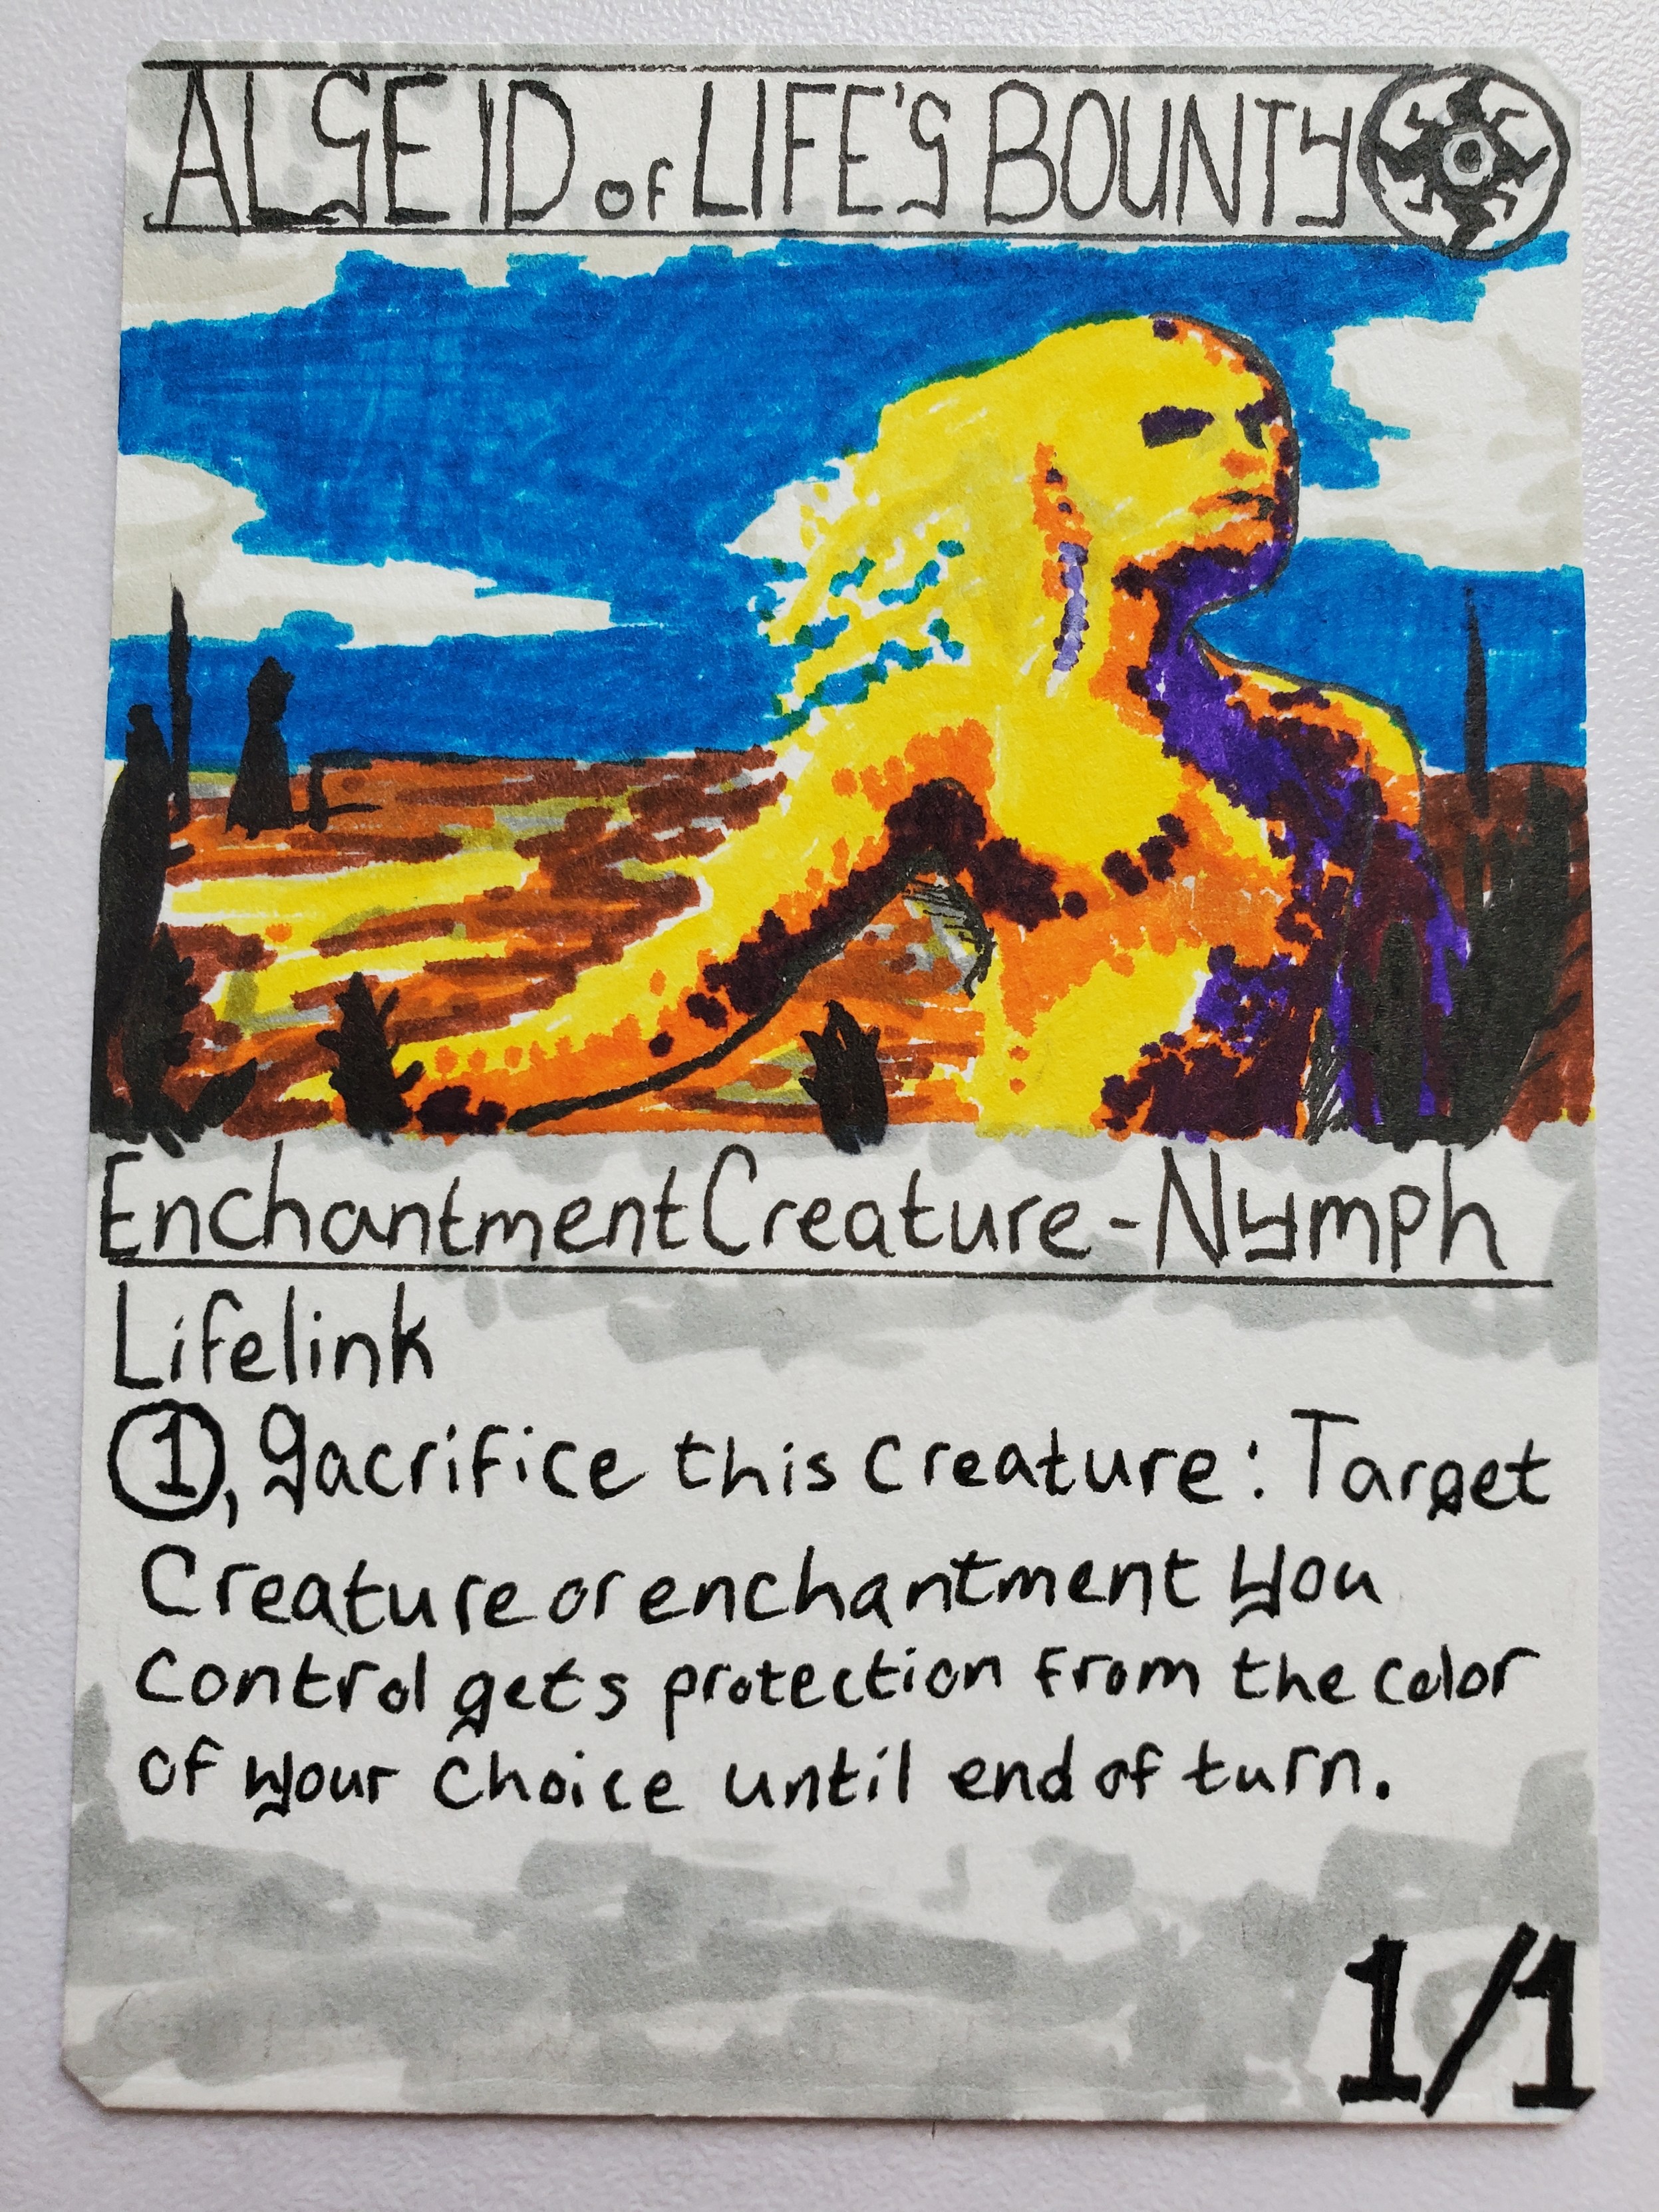 ALSEID OF LIFE'S BOUNTY
Enchantment Creature - Nymph
Lifelink
1, Sacrifice this creature: Target
Creature or enchantment you
control gets protection from the color
of your choice until end of turn.
1/1